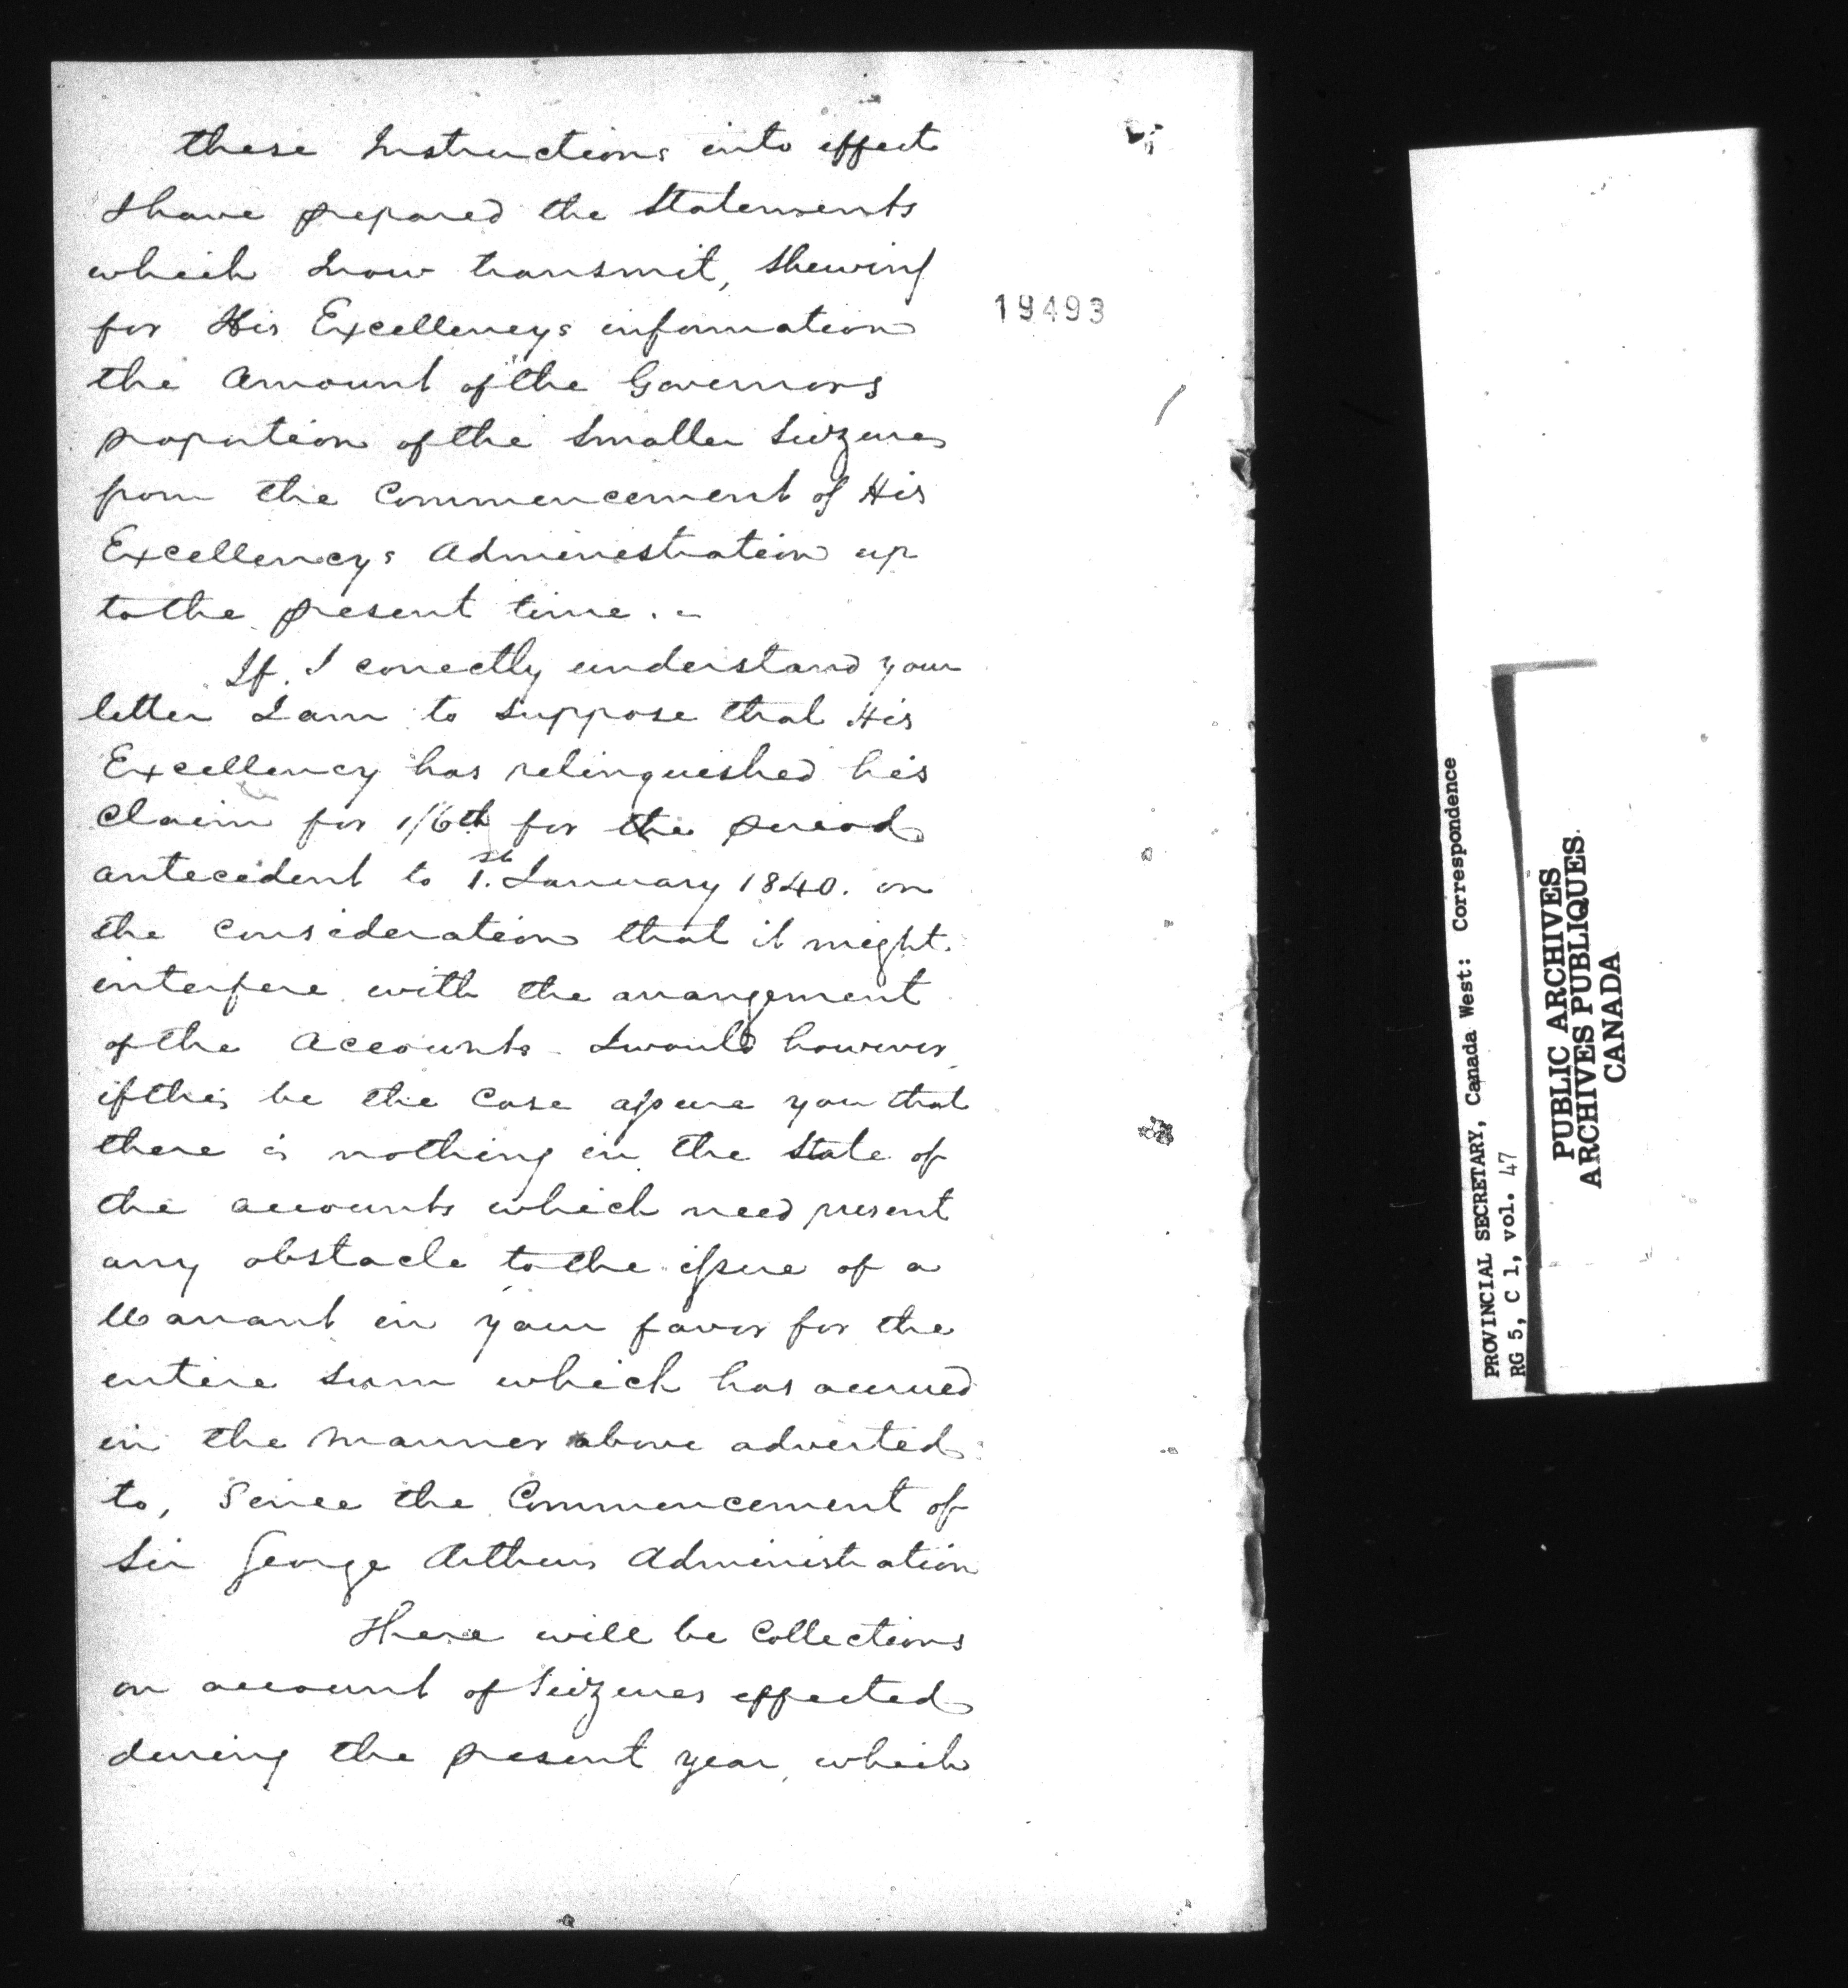 these Instructions into effect
I have prepared the Statements
which I now transmit, shewing
for His Excellencys information
the Amount of the Governors
proportion of the Smaller Seizures
from the Commencement of His
Excellencys Administration up
to the present time. -
If I correctly understand your
letter I am to Suppose that His
Excellency has relinquished his
Claim for 1/6th for the period
antecedent to 1.st January 1840. on
the Consideration that it might
interfere with the arrangement
of the Accounts - I would however
if this be the Case assure you that
there is nothing in the State of
the accounts which need present
any obstacle to the issue of a
Warrant in your favor for the
entire Sum which has accrued
in the manner above adverted
to, Since the Commencement of
Sir George Arthurs Administration
There will be Collections
on account of Seizures effected
during the present year, which
19493
PROVINCIAL SECRETARY, Canada West: Correspondence
RG 5, C 1, vol. 47
PUBLIC ARCHIVES
ARCHIVES PUBLIQUES
CANADA